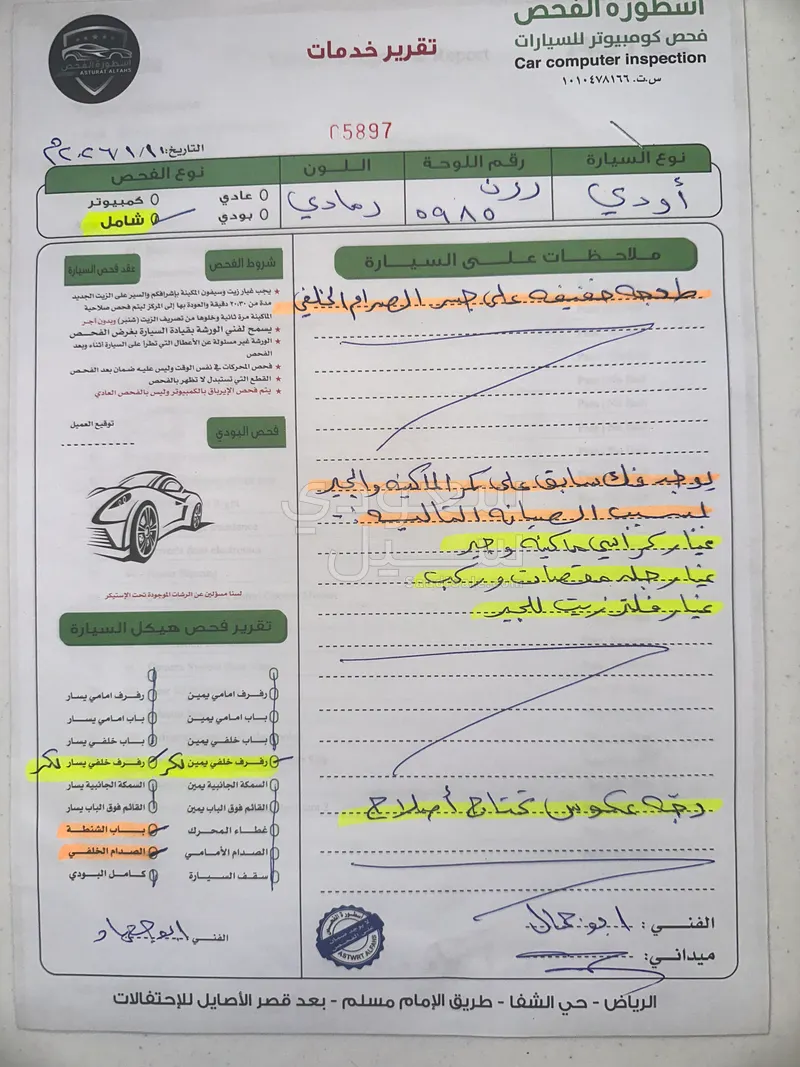 أسطورة الفحص
فحص كومبيوتر للسيارات
Car computer inspection
س.ت. ١٠١٠٤٧٨١٦٦
أسطورة الفحص
ASTURAT ALFAHS
تقرير خدمات
05897
التاريخ:
نوع السيارة
رقم اللوحة
اللون
نوع الفحص
أودي
٥٩٨٥
رمادي
عادي
كمبيوتر
بودي
شامل
ملاحظات على السيارة
على جسر الصدام الخلفي
يوجد فك سابق على كر الماكينة والجير
لسبب الصيانة التالية :-
غيار كراسي ماكينة وجير
غيار جلد مقصات وركب
غيار فلتر زيت للجير
دجه عكوس تحتاج أصلاح
الفني: ابو جمال
ميداني:
شروط الفحص
عقد فحص السيارة
يجب غيار زيت وسيفون المكينة بإشرافكم والسير على الزيت الجديد
مدة من ٢٠:٣٠ دقيقة والعودة بها إلى المركز ليتم فحص صلاحية
الماكينة مرة ثانية وخلوها من تصريف الزيت (شنبر) وبدون أجر
يسمح لفني الورشة بقيادة السيارة بغرض الفحص
الورشة غير مسئولة عن الأعطال التي تطرأ على السيارة أثناء وبعد
الفحص
فحص المحركات في نفس الوقت وليس عليه ضمان بعد الفحص
القطع التي تستبدل لا تظهر بالفحص
يتم فحص الإيرباق بالكمبيوتر وليس بالفحص العادي
توقيع العميل
فحص البودي
لسنا مسؤلين عن الرشات الموجودة تحت الإستيكر
تقرير فحص هيكل السيارة
رفرف امامي يمين
رفرف امامي يسار
باب امامي يمين
باب امامي يسار
باب خلفي يمين
باب خلفي يسار
رفرف خلفي يمين
رفرف خلفي يسار
السمكة الجانبية يمين
السمكة الجانبية يسار
القائم فوق الباب يمين
القائم فوق الباب يسار
غطاء المحرك
باب الشنطة
الصدام الأمامي
الصدام الخلفي
سقف السيارة
كامل البودي
الفني ابو جهاد
سعودي سيل
الرياض - حي الشفا - طريق الإمام مسلم - بعد قصر الأصايل للإحتفالات